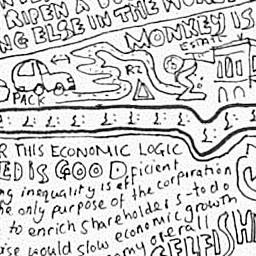 RIPEN A
NG ELSE IN THE WOR
MONKEY IS
ESTATE
R2
PACK
£ £ £ £ £ £ £ £ £
R THIS ECONOMIC LOGIC
ED IS GOOD
ng inequality is efficient
he only purpose of the corporation
to enrich shareholders - to do
ise would slow economic growth
my overall
SELFISH